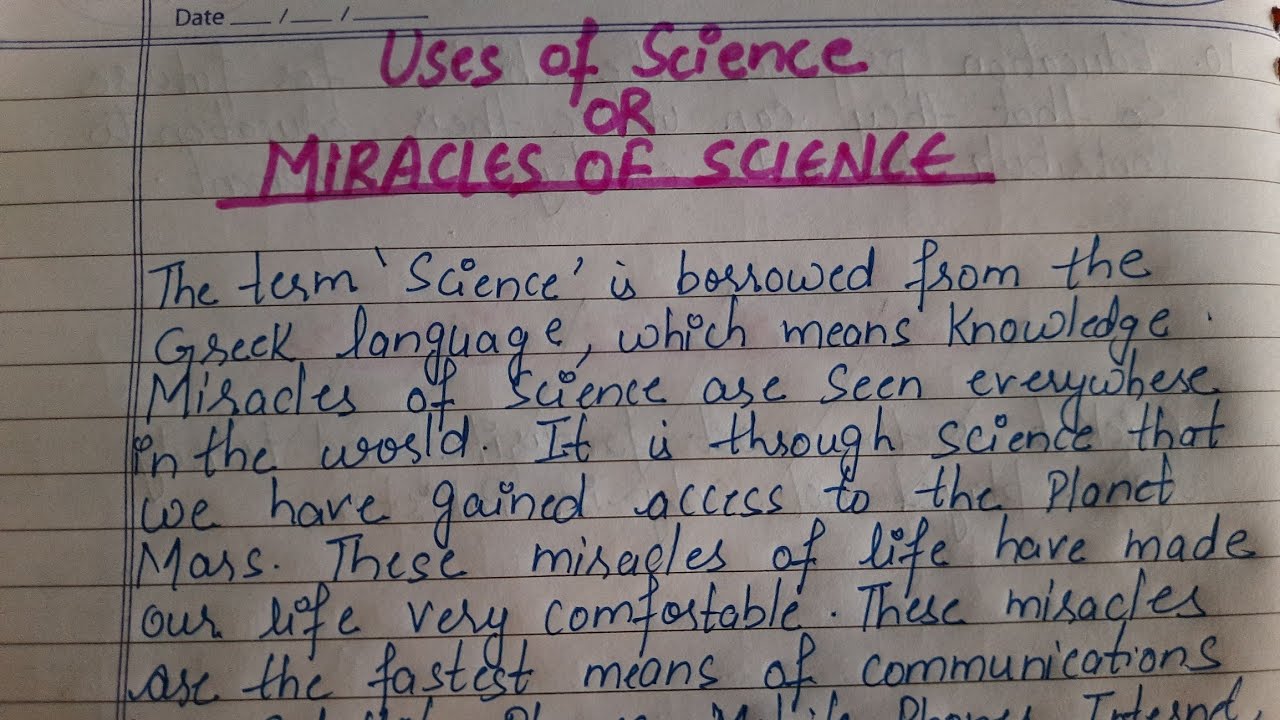 Date ___ / ___ / ___
Uses of Science
OR
MIRACLES OF SCIENCE
The term 'Science' is borrowed from the
Greek language, which means Knowledge.
Miracles of Science are seen everywhere
in the world. It is through science that
we have gained access to the Planet
Mars. These miracles of life have made
our life very comfortable. These miracles
are the fastest means of communications